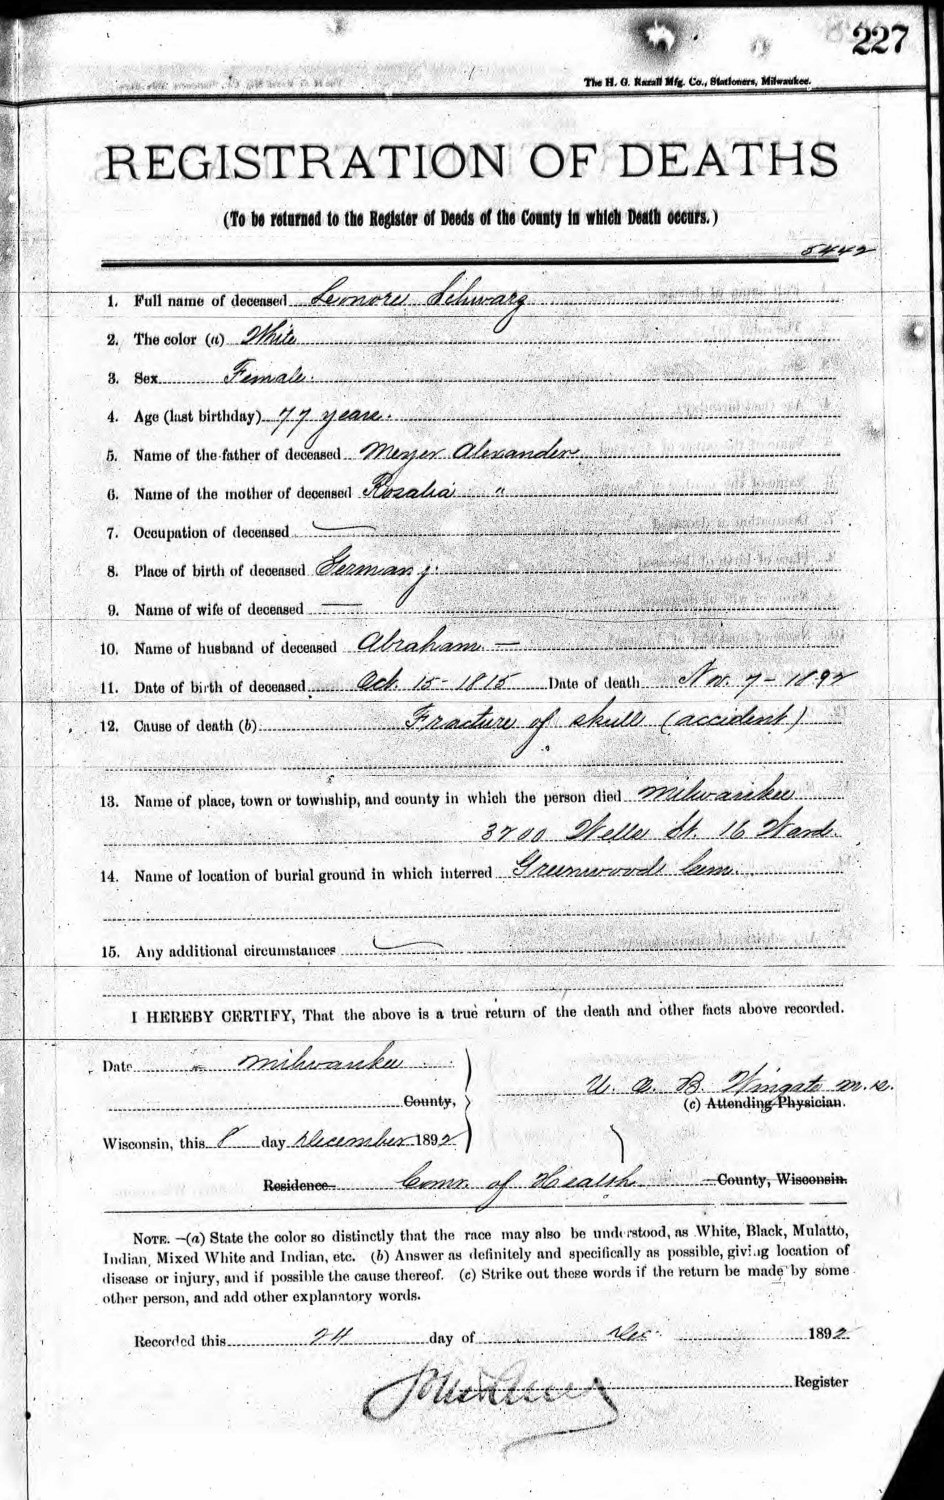 227
The H. G. Razall Mfg. Co., Stationers, Milwaukee.
REGISTRATION OF DEATHS
(To be returned to the Register of Deeds of the County in which Death occurs.)
5442
1. Full name of deceased Leonore Schwarz
2. The color (a) White
3. Sex Female.
4. Age (last birthday) 77 years.
5. Name of the father of deceased Meyer Alexander.
6. Name of the mother of deceased Rosalia "
7. Occupation of deceased
8. Place of birth of deceased Germany.
9. Name of wife of deceased —
10. Name of husband of deceased Abraham. —
11. Date of birth of deceased Oct. 15 - 1815 Date of death Nov. 7 - 1892
12. Cause of death (b) Fracture of skull (accident)
13. Name of place, town or township, and county in which the person died Milwaukee
3700 Wells St. 16 Ward.
14. Name of location of burial ground in which interred Greenwood Cem.
15. Any additional circumstances
I HEREBY CERTIFY, That the above is a true return of the death and other facts above recorded.
Date Milwaukee
U. O. B. Wingate M.D.
County,
(c) Attending Physician.
Wisconsin, this 8 day December 1892
Residence Comr. of Health County, Wisconsin.
NOTE.—(a) State the color so distinctly that the race may also be understood, as White, Black, Mulatto,
Indian, Mixed White and Indian, etc. (b) Answer as definitely and specifically as possible, giving location of
disease or injury, and if possible the cause thereof. (c) Strike out these words if the return be made by some
other person, and add other explanatory words.
Recorded this 24 day of Dec. 1892
Register